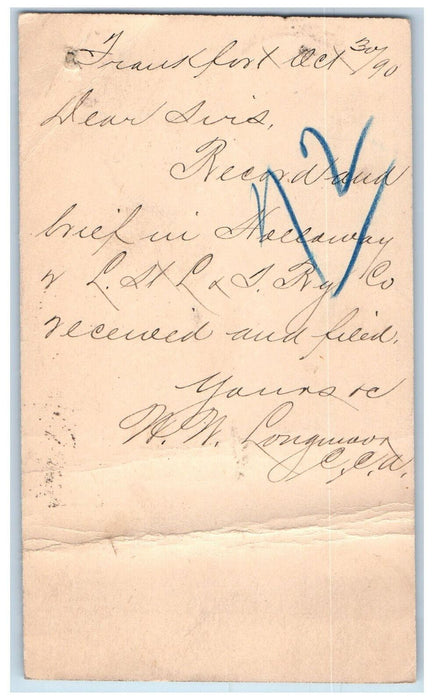 Frankfort Oct 30/90
Dear Sirs,
Record and
brief in Holloway
v L. St L & T. Ry Co
received and filed.
Yours &c
W. W. Longmoor
C.C.A.